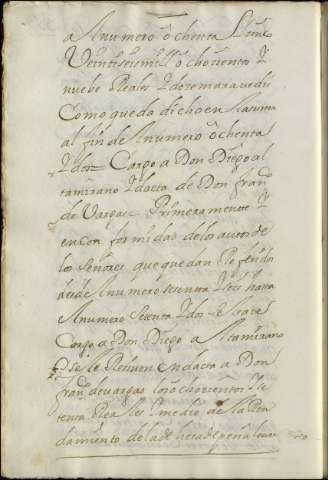 a el numero ochenta
Veinte seis mill ochocientos y
nuebe Reales y doze maravedis
Como queda dicho en la suma
al fin de el numero ochenta
y dos Cargo a Don Diego al
tamirano y data de Don fran.co
de Vargas Primeramente
en con formidad de los autos de
los Señores que quedan Referidos
desde el numero sesenta hasta
el numero setenta y dos se le açe
Cargo a Don Diego Altamirano
y se le Reciven en data a Don
fran.co de vargas los ochocientos
tenta Reales y medio de el a Ren
damiento de la dehesa de peña